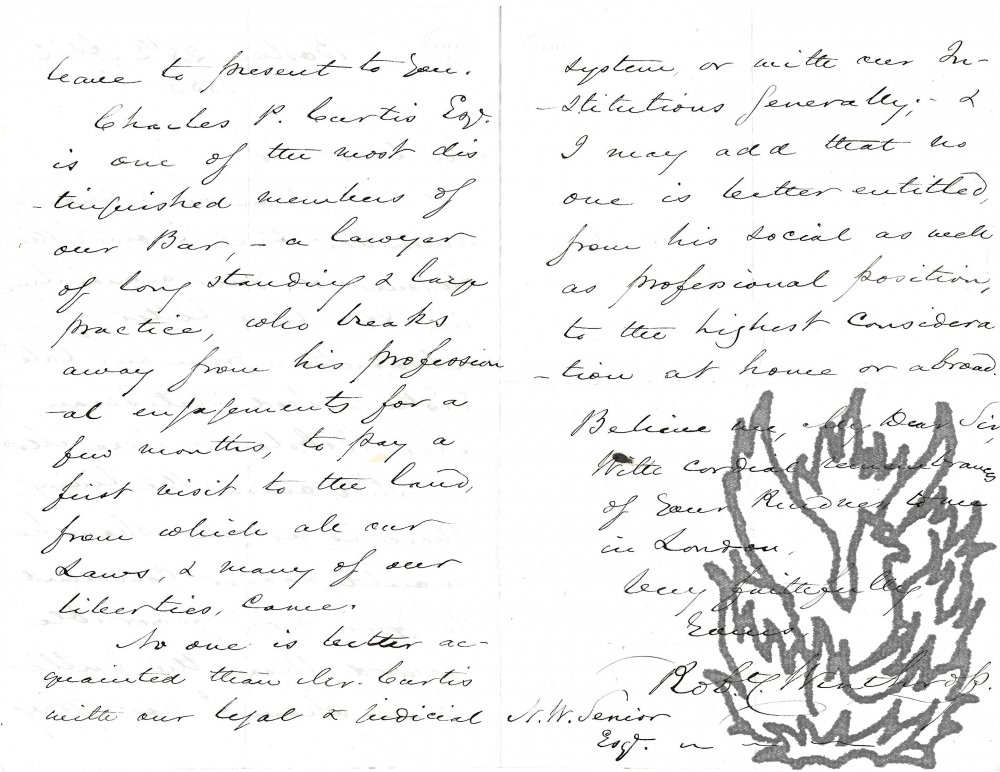 leave to present to you.
Charles P. Curtis Esqr.
is one of the most dis
-tinguished members of
our Bar, - a lawyer
of long standing & large
practice, who breaks
away from his profession
-al engagements for a
few months, to pay a
first visit to the land,
from which all our
Laws, & many of our
liberties, come.
No one is better ac-
quainted than Mr. Curtis
with our legal & judicial
system, or with our In-
-stitutions generally; - &
I may add that no
one is better entitled,
from his social as well
as professional position,
to the highest considera
-tion at home or abroad.
Believe me, My Dear Sir,
With cordial remembrances
of your kindness to me
in London,
Very faithfully
Yours,
Robt. C. Winthrop.
N. W. Senior
Esqr.